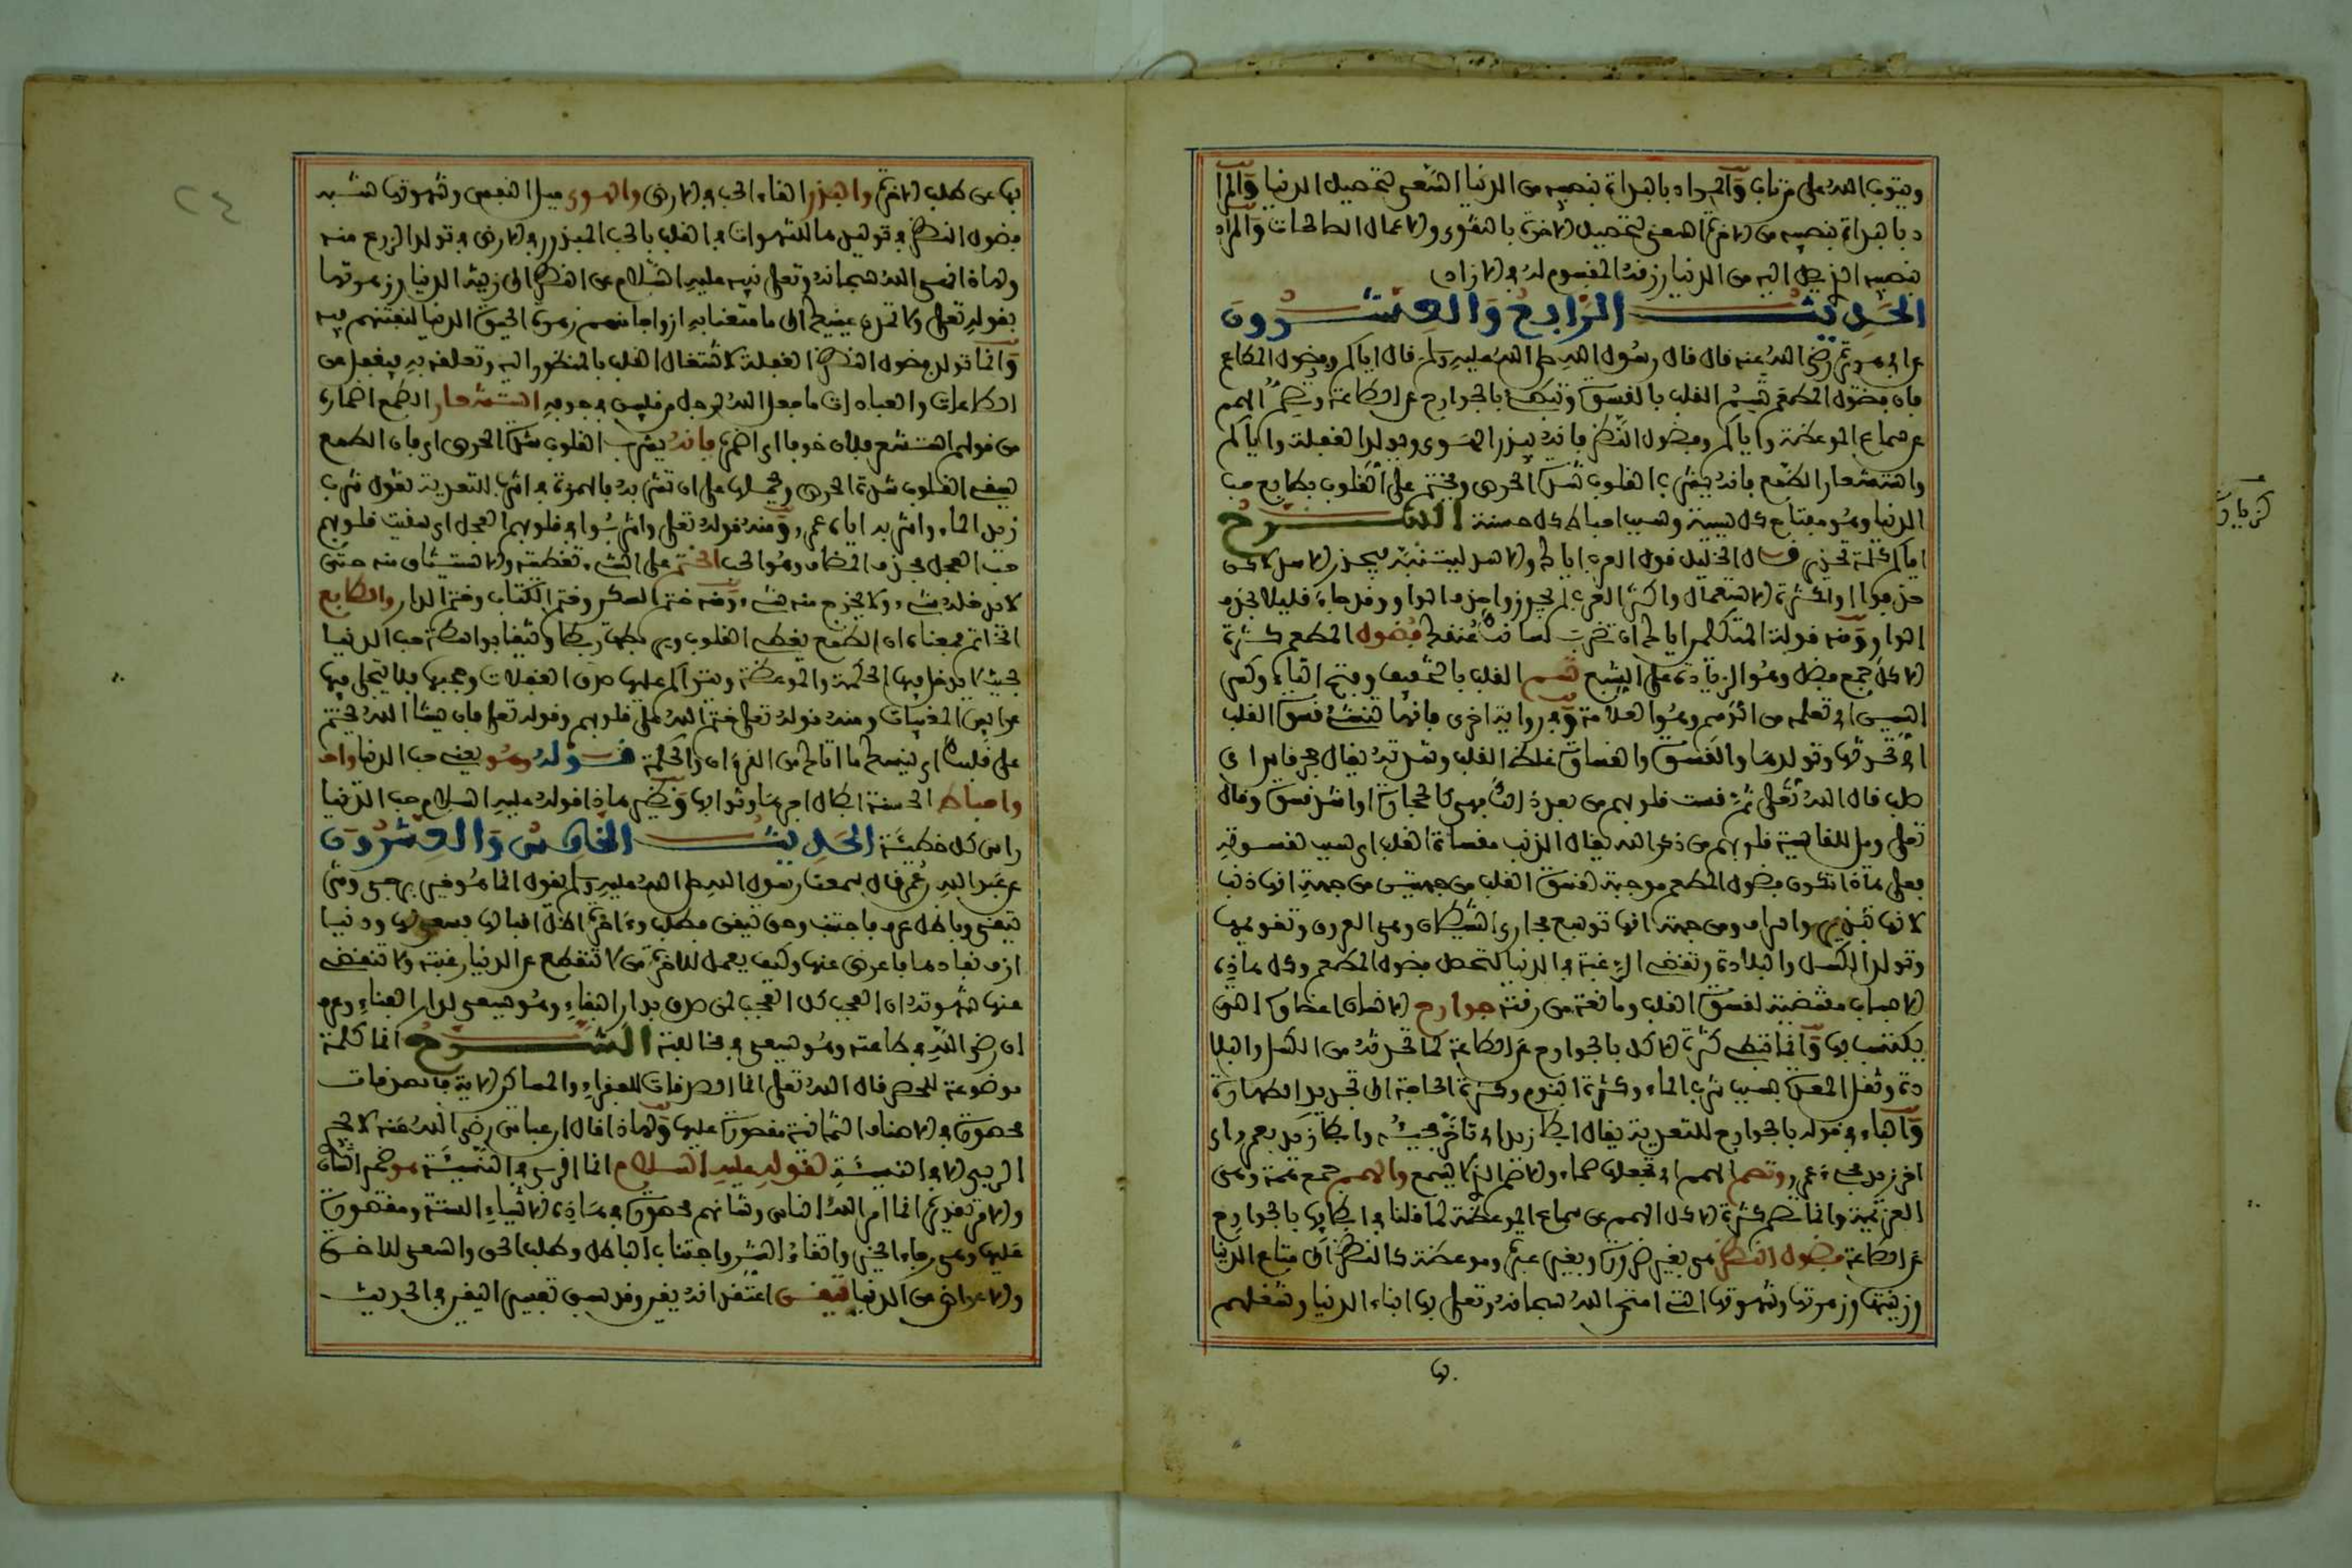 ويتوب الله على من تاب والمراد بالبداة بنصيبه من الدنيا السعي لتحصيل الدنيا والمرا
د بالبداة بنصيبه من الاخرة السعي لتحصيل الاخرة بالتقوى والاعمال الصالحات والمراد
بنصيبه الذي يصل اليه من الدنيا رزقه المقسوم له في الازل
الحديث الرابع والعشرون
عن ابي هريرة رضي الله عنه قال قال رسول الله صلى الله عليه وسلم قال اياكم وفضول المطاعم
فان فضول المطعم تسم القلب بالقسوة وتبطئ بالجوارح عن الطاعة وتصم الهمم
عن سماع الموعظة واياكم وفضول النظر فانه يبذر الهوى ويولد الغفلة واياكم
واستشعار الطمع فانه يشرب القلوب شدة الحرص ويختم على القلوب بطابع حب
الدنيا وهو مفتاح كل سيئة وسبب احباط كل حسنة الشرح
اياكم كلمة تحذير قال الخليل قول العرب اياك والاسد
اصله وفضول المطعم كثرة
الاكل جمع فضل وهو الزيادة على الشبع تسم القلب بالتخفيف وفتح التاء وكسر
السين اي تعلمه من الوسم وهو العلامة وفي رواية اخرى فانها تنشئ قسوة القلب
اي تحدثها وتولدها والقسوة والقساوة غلظ القلب وشدته يقال حجر قاس اي
صلب قال الله تعالى ثم قست قلوبهم من بعد ذلك فهي كالحجارة او اشد قسوة وقال
تعالى فويل للقاسية قلوبهم من ذكر الله يقال الذنب مقساة القلب اي سبب لقسوته
فعلى هذا تكون فضول المطعم موجبة لقسوة القلب من جهتين من جهة انها ذنب
لانها تبذير واسراف ومن جهة انها توسع مجاري الشيطان وهي العروق وتقويها
وتولد الكسل والبلادة وتقتضي الرغبة في الدنيا لتحصل فضول المطعم وكل هذه
الاسباب مقتضية لقسوة القلب ومانعة من رقته جوارح الانسان اعضاؤه التي
يكتسب بها وانما تبطئ كثرة الاكل بالجوارح عن الطاعة لما تحدثه من الكسل والبلا
دة وثقل المعدة بسبب شرب الماء وكثرة النوم وكثرة الحاجة الى تجديد الطهارة
والباء في قوله بالجوارح للتعدية يقال ابطأ زيد اي تأخر مجيئه وابطأ زيد بعمرو اي
اخر زيد مجيء عمرو وتصم الهمم اي تجعلها صماء والاصم الذي لا يسمع والهمم جمع همة وهي
العزيمة وانما تصم كثرة الاكل الهمم عن سماع الموعظة لما قلنا في ابطائها بالجوارح
عن الطاعة فضول النظر هي بغير ضرورة وبغير عبرة وموعظة كالنظر الى متاع الدنيا
وزينتها وزهرتها وشهوتها التي امتحن الله سبحانه وتعالى بها ابناء الدنيا وشغلهم
بها
٢٤
بها عن طلب الاخرة والبذر القاء الحب في الارض والهوى ميل النفس وشهوتها شبه
فضول النظر في توليدها للشهوات في القلب بالحب المبذور في الارض في تولد الزرع منه
ولهذا نهى الله سبحانه وتعالى نبيه عليه السلام عن النظر الى زينة الدنيا وزهرتها
بقوله تعالى ولا تمدن عينيك الى ما متعنا به ازواجا منهم زهرة الحيوة الدنيا لنفتنهم فيه
وانما تولد فضول النظر الغفلة لاشتغال القلب بالمنظور اليه وتعلقه به فيغفل عن
الطاعات والعبادات ما جعل الله لرجل من قلبين في جوفه استشعار الطمع اضماره
من قولهم استشعر فلان خوفا اي اضمره فانه يشرب القلوب شدة الحرص اي فان الطمع
يسقي القلوب شدة الحرص ويحملها على ان تشربه بالهمزة في اشرب للتعدية تقول شرب
زيد الماء واشربه اياه عمرو ومنه قوله تعالى واشربوا في قلوبهم العجل اي سقيت قلوبهم
حب العجل فحذف المضاف وهو الحب الختم على الشيء تغطيته والاستيثاق منه حتى
لا يدخله شيء ولا يخرج منه شيء ومنه ختم الصك وختم الكتاب وختم الدار والطابع
الخاتم فمعناه ان الطمع يغطي القلوب ويربطها ربطا وثيقا بواسطة حب الدنيا
بحيث لا يدخل فيها الحكمة والموعظة ويتراكم عليها صدأ الغفلات وحجبها فلا يتجلى فيها
عرايس المغيبات ومنه قوله تعالى ختم الله على قلوبهم وقوله تعالى فان يشأ الله يختم
على قلبك اي ينسك ما اتاك من القرءان والحكمة قوله وهو يعني حب الدنيا
واحباط الحسنة ابطال اجرها وثوابها ونظير هذا قوله عليه السلام حب الدنيا
راس كل خطيئة الحديث الخامس والعشرون
عن عبد الله بن عمر قال سمعت رسول الله صلى الله عليه وسلم يقول انما هو خير يرجى وشر
يتقى وباطل عرف فاجتنب وحق تيقن فطلب وءاخرة اظل اقبالها فسعي لها ودنيا
ازف نفادها فاعرض عنها وكيف يعمل للاخرة من لا تنقطع عن الدنيا رغبته ولا تنقضي
عنها شهوته ان العجب كل العجب لمن صدق بدار البقاء وهو يسعى لدار الفناء وعرف
ان رضى الله في طاعته وهو يسعى في مخالفته الشرح انما كلمة
موضوعة للحصر قال الله تعالى انما الصدقات للفقراء والمساكين الاية فالصدقات
محصورة في الاصناف الثمانية مقصورة عليها ولهذا قال ابن عباس رضي الله عنه لا يجري
الربى الا في النسيئة لقوله عليه السلام انما الربى في النسيئة
والامر تقديره انما امر الله الناس وشانهم محصورة في هذه الاشياء الستة ومقصورة
عليها وهي رجاء الخير واتقاء الشر واجتناب الباطل وطلب الحق والسعي للاخرة
والاعراض عن الدنيا تيقن اعتقد انه يقين وقد سبق تفسير اليقين في الحديث